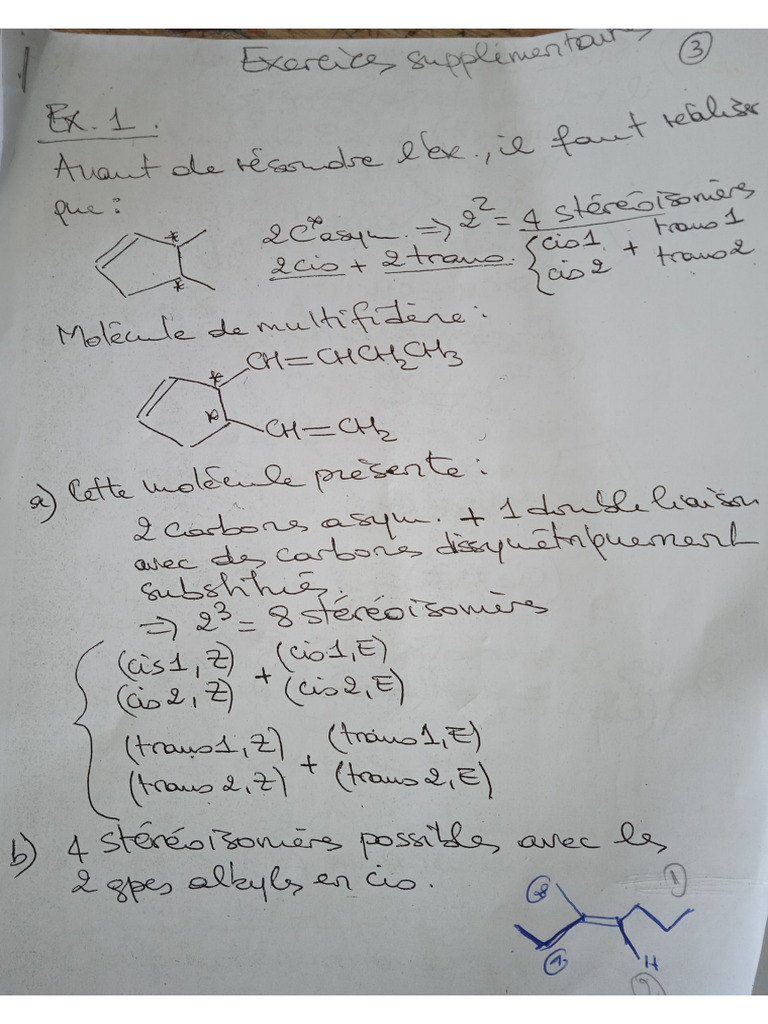 Exercices supplémentaires
3
Ex. 1.
Avant de résoudre l'ex., il faut réaliser
que :
2C* asym. => 2² = 4 stéréoisomères
2 cis + 2 trans. { cis 1 + trans 1
cis 2 trans 2
* *
Molécule de multifidène :
CH=CHCH2CH3
* *
CH=CH2
a) Cette molécule présente :
2 carbones asym. + 1 double liaison
avec des carbones dissymétriquement
substitués.
=> 2³ = 8 stéréoisomères
(cis 1, Z) + (cis 1, E)
(cis 2, Z) (cis 2, E)
(trans 1, Z) + (trans 1, E)
(trans 2, Z) (trans 2, E)
b) 4 stéréoisomères possibles avec les
2 gpes alkyles en cis.
1
H
2